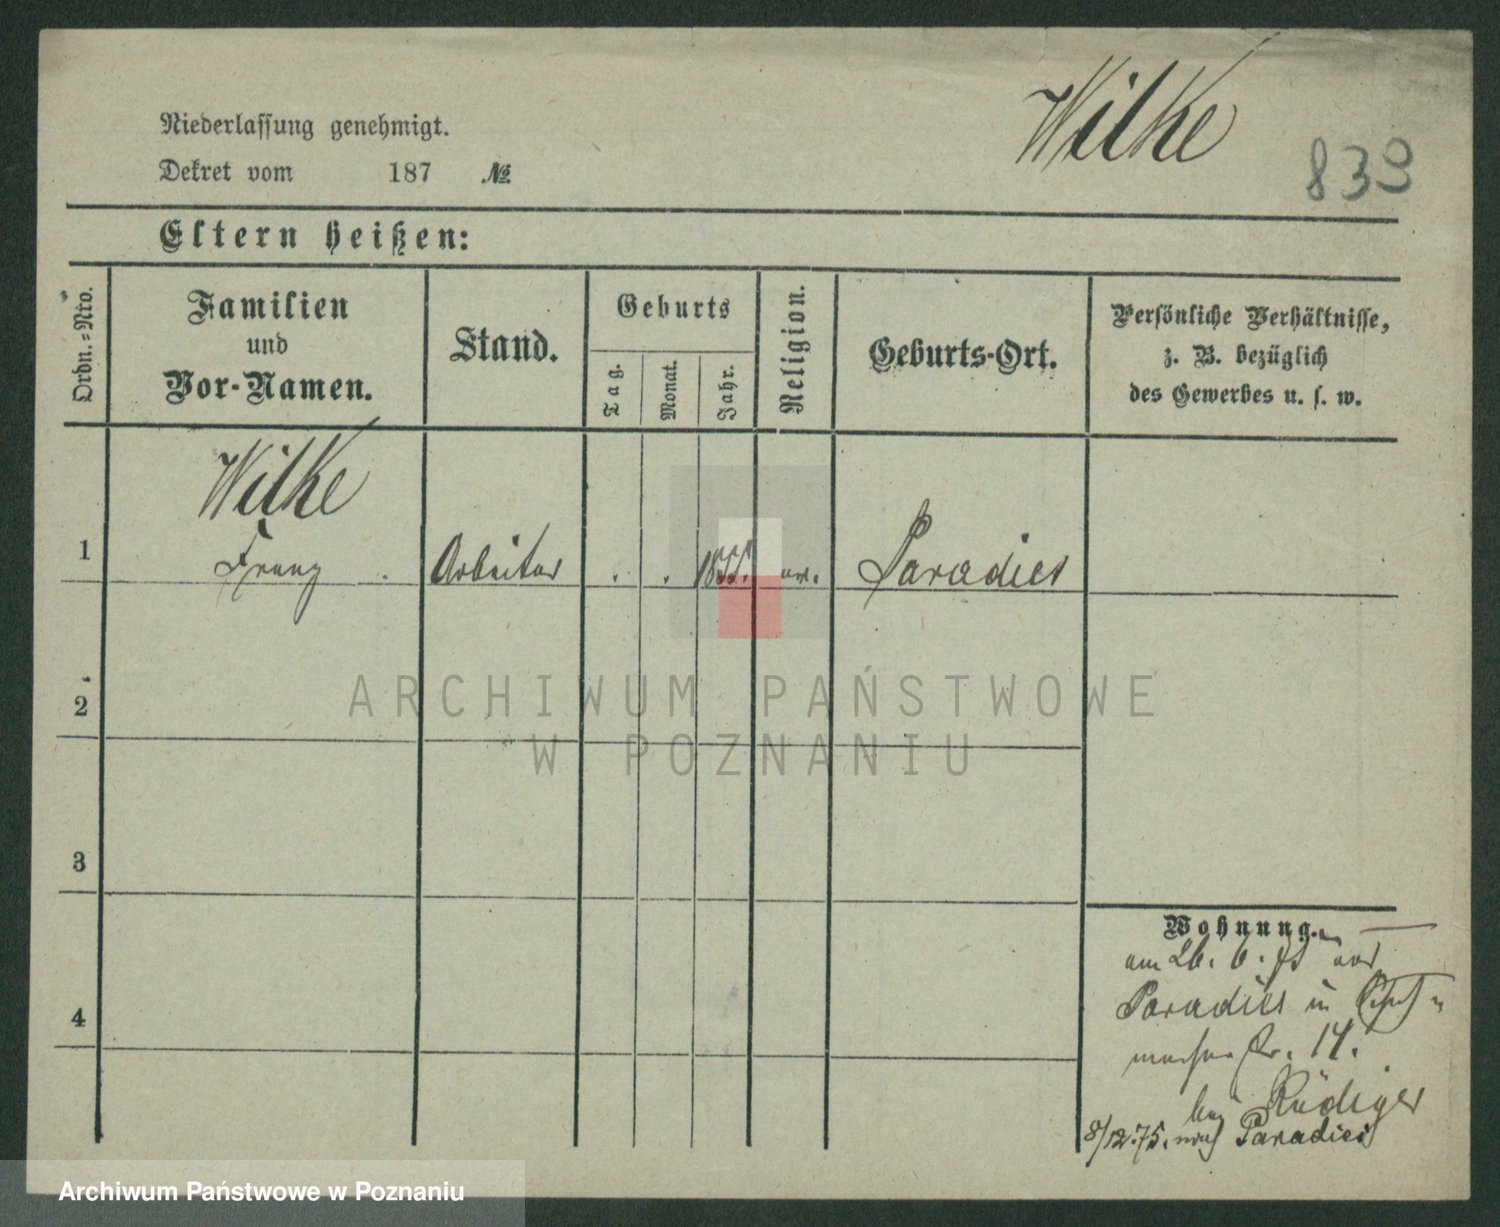 Wilke
839
Niederlassung genehmigt.
Dekret vom 187 №
Eltern heißen:
Ordn.-Nro.
Familien
und
Vor-Namen.
Stand.
Geburts
Tag.
Monat.
Jahr.
Religion.
Geburts-Ort.
Persönliche Verhältnisse,
z. B. bezüglich
des Gewerbes u. s. w.
Wilke
1 Franz Arbeiter 1855. Paradies
2
3
4
Wohnung.
am 26. 6. 75 aus
Paradies in Schuh
macher Str. 14.
bei Rüdiger
8/12.75. nach Paradies
ARCHIWUM PAŃSTWOWE
W POZNANIU
Archiwum Państwowe w Poznaniu